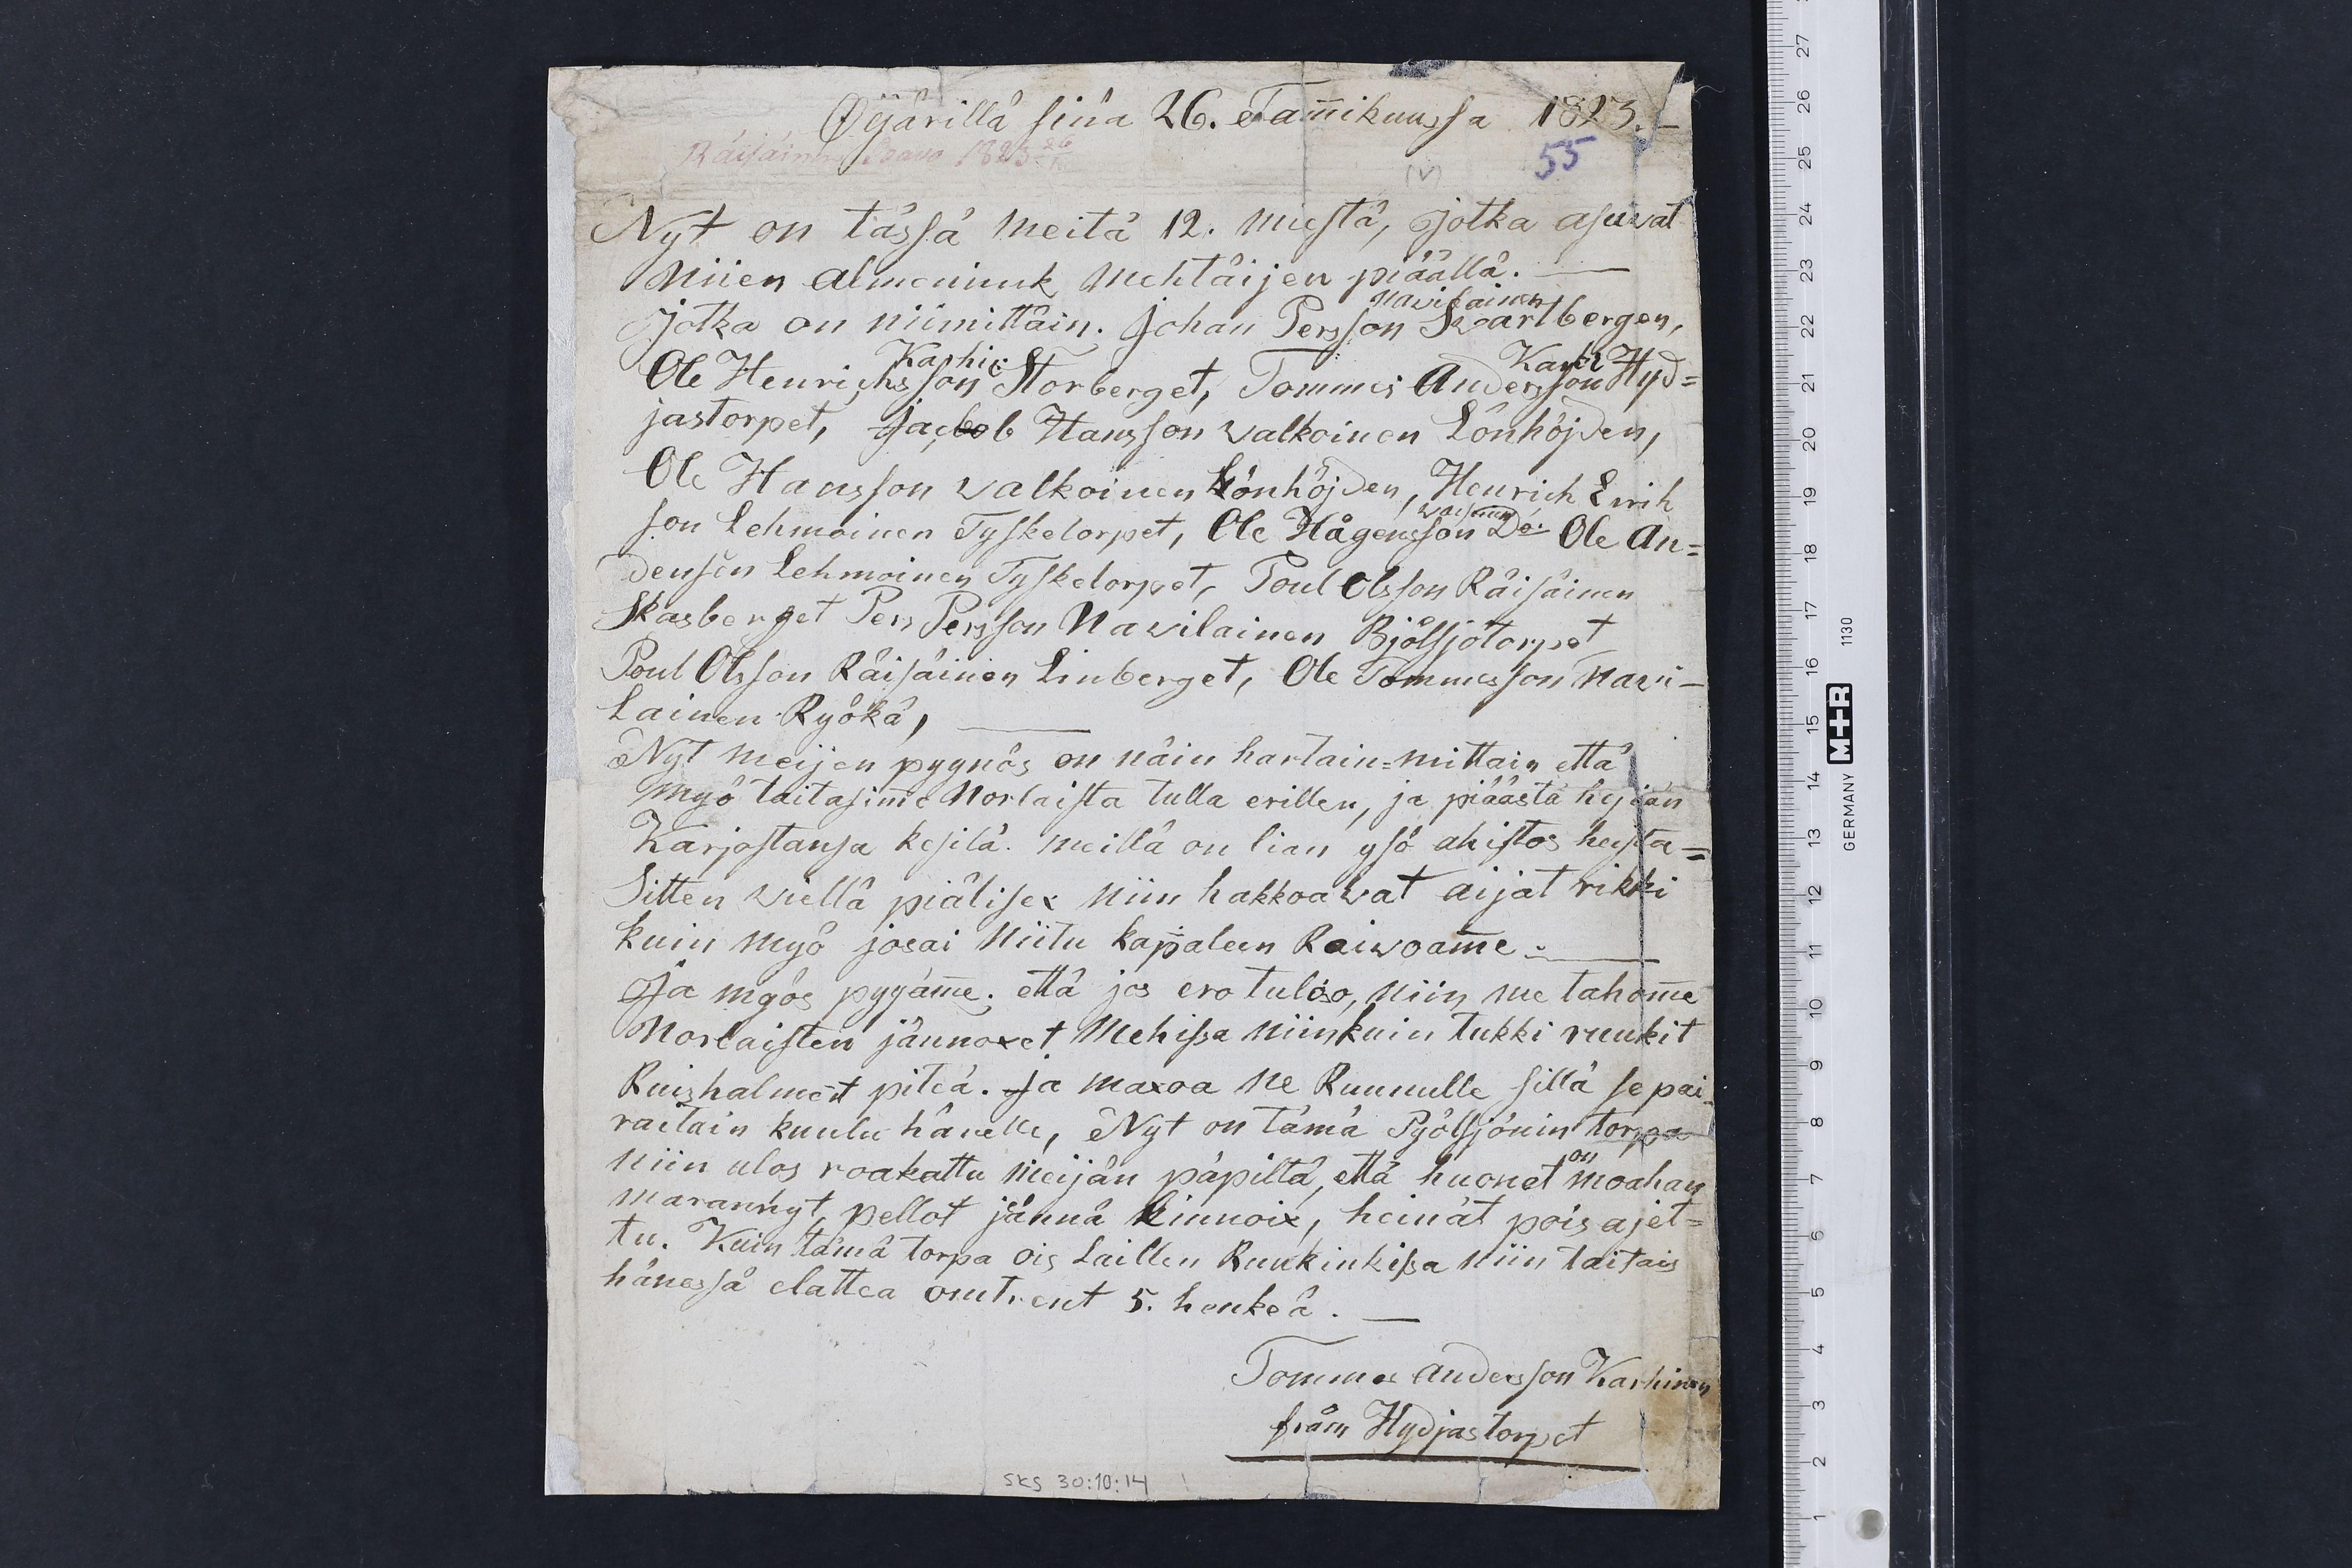 Öijärillä sinä 26. Tam̄ikuussa 1823.
Räisäinen Paavo 1823 26/1
55
(v)
Nyt on tässä meitä 12. miestä, jotka asuwat
Niien almeninuk Mehtäijen piäällä. —
Nawilainen
Jotka on niimittäin. Johan Persson Swartbergen,
Karhi: Karhi
Ole Henrichsson Storberget, Tommes Andersson Hyd=
jastorpet, Jacob Hansson Walkoinen Lönhöjden,
Ole Hansson Walkoinen Lönhöjden, Henrich Erih
son Lehmoinen Tysketorpet, Ole Hågensson Do. Ole An=
densen Lehmoinen Tysketorpet, Poul Olsson Räisäinen
Skasberget Pers Persson Nawilainen Bjölsjötorpet
Poul Olsson Räisäinen Linberget, Ole Tommesson Nawi-
Lainen Ryökä, —
Nyt meijen pyynös on näin hartain=mittain että
myö taitasim̄e Norlaista tulla erillen, ja piäästä heijän
Karjostansa kesilä. meillä on lian ysö ahistos heista=
Sitten wiellä piälisex niin hakkoawat aijat rikki
kuin myö josai Niitu kap̄aleen Raiwoam̄e. —
Ja myös pyyäm̄e. että jos ero tuloso, niin me tahom̄e
Norlaisten jännoxet Mehissa niinkuin tukki ruukit
Ruishalmet piteä. Ja maxoa ne Ruunulle sillä se pai-
raitain kuulu hänelle, Nyt on tämä Pyölsjönin torpa
on
niin ulos roakattu meijän päpiltä, että huonet moahan
marannyt, pellot jännä kinnoix, heinät pois ajet=
tu. Kuin tämä torpa ois Laillen Ruukinkissa niin taitais
hänessä elattea omtrent 5. henkeä. —
Tommes Andersson Karhinen
från Hydjastorpet
SKS 30:10:14
27 26 25 24 23 22 21 20 19 18 17 16 15 14 13 12 11 10 9 8 7 6 5 4 3 2 1
GERMANY M+R 1130